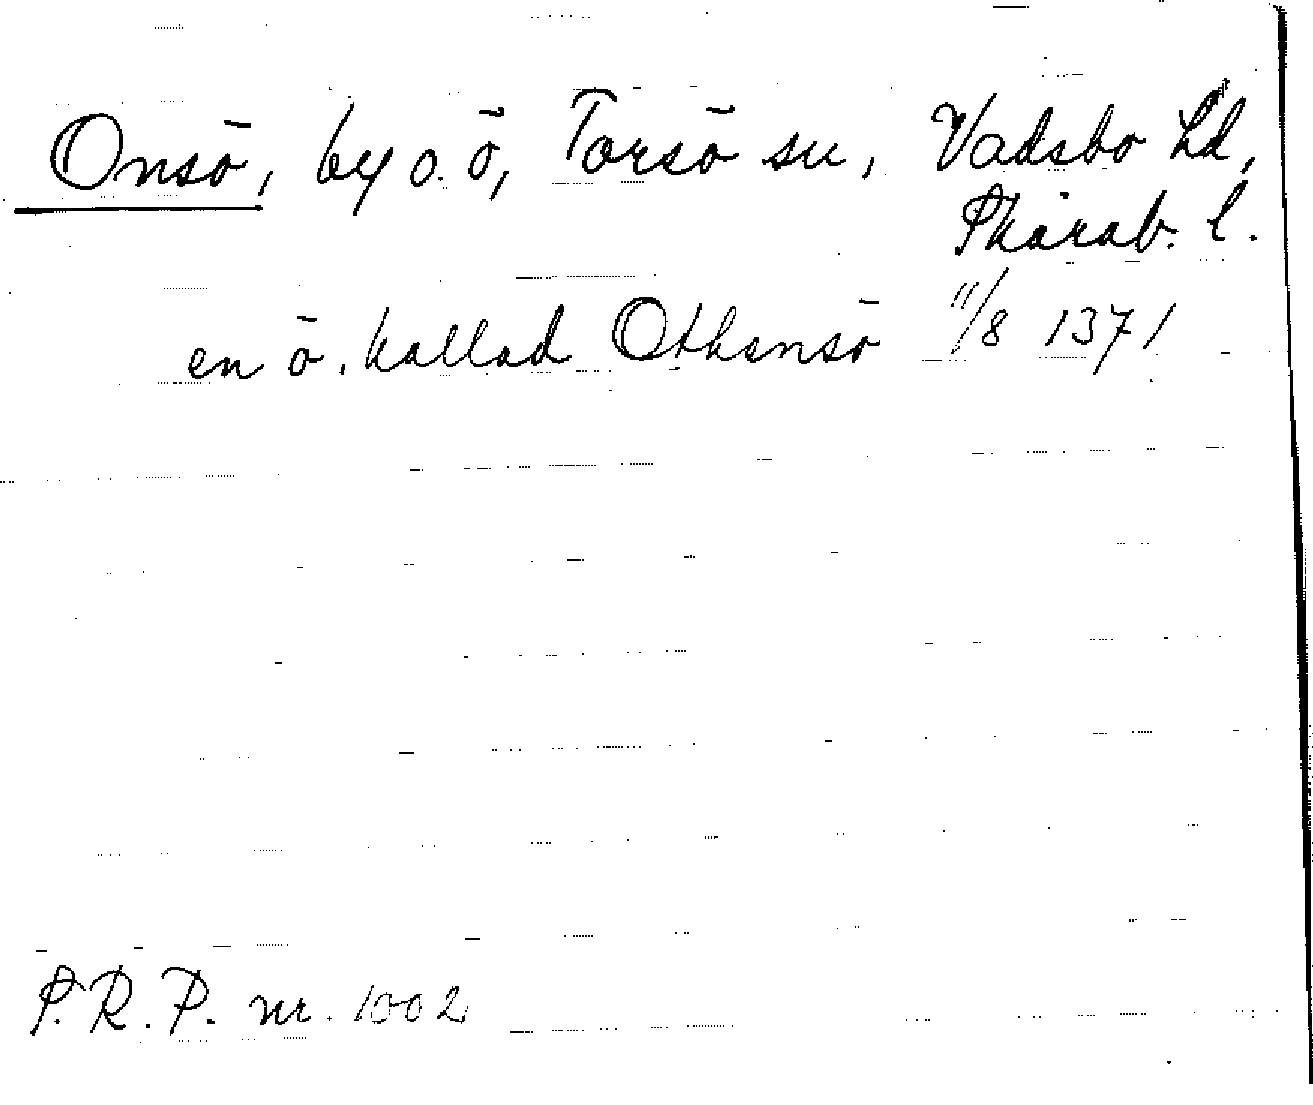 Onsö, by o. ö, Torsö sn, Vadsbo hd,
Skarab. l.
en ö. kallad Othensö 11/8 1371
P.R.P. nr. 1002